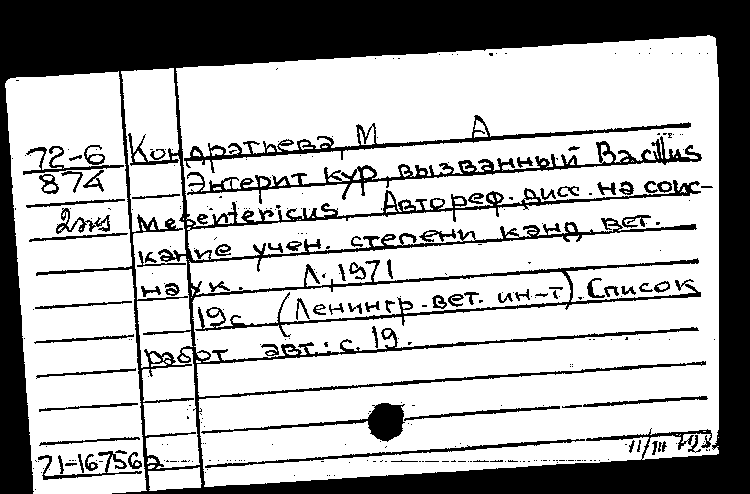 72-6 Кондратьева, М А
874 Энтерит кур, вызванный Bacillus
2 экз mesentericus. Автореф. дисс. на соис-
кание учен. степени канд. вет.
наук. Л., 1971
19 с. (Ленингр. вет. ин-т). Список
работ авт.: с. 19.
71-16756а